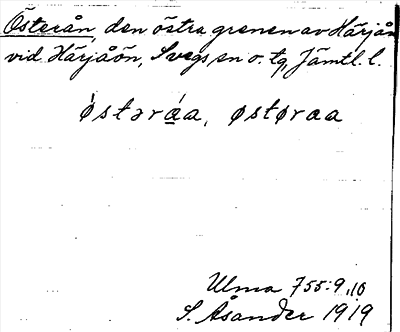 Österån, den östra grenen av Härjån
vid Härjåön, Svegs sn o. tg, Jämtl. l.
ǿstərá̱a, østøraa
Ulma 755:9, 10
S. Åsander 1919